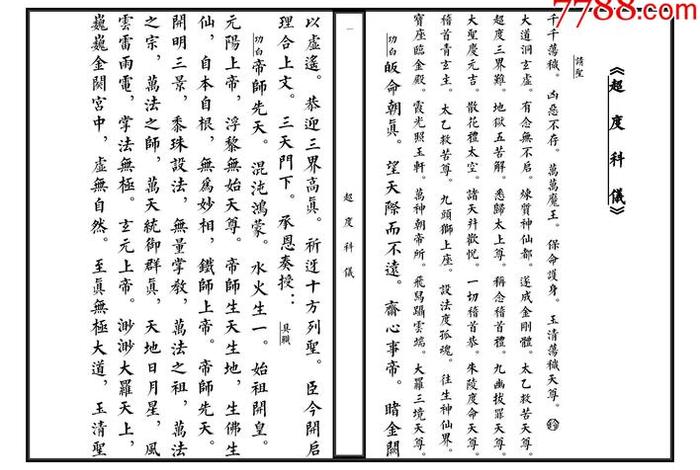 7788.com
《超度科儀》
請聖
千千蕩穢。凶惡不存。萬萬魔王。保命護身。玉清蕩穢天尊。
大道洞玄虛。有念無不启。煉質神仙都。遂成金剛體。太乙救苦天尊。
超度三界難。地獄五苦解。悉歸太上尊。稱念稽首禮。九幽拔罪天尊。
大聖慶元吉。散花禮太空。諸天并歡悅。一切稽首恭。朱陵度命天尊。
稽首青玄主。太乙救苦尊。九頭獅上座。設法度孤魂。往生神仙界。
寶座臨金殿。霞光照玉軒。萬神朝帝所。飛舄躡雲端。大羅三境天尊。
功白 皈命朝真。望天際而不遠。齋心事帝。睹金闕
一
超度科儀
以虛遙。恭迎三界高真。祈迓十方列聖。臣今開启
理合上文。三天門下。承恩奏授： 具職
功白 帝師先天。混沌鴻蒙。水火生一。始祖開皇。
元陽上帝，浮黎無始天尊。帝師生天生地，生佛生
仙，自本自根，無爲妙相，鐵師上帝。帝師先天。
開明三景，黍珠設法，無量掌教，萬法之祖，萬法
之宗，萬法之師，萬天統御群真，天地日月星，風
雲雷雨電，掌法無極。玄元上帝。渺渺大羅天上，
巍巍金闕宮中，虛無自然。至真無極大道，玉清聖